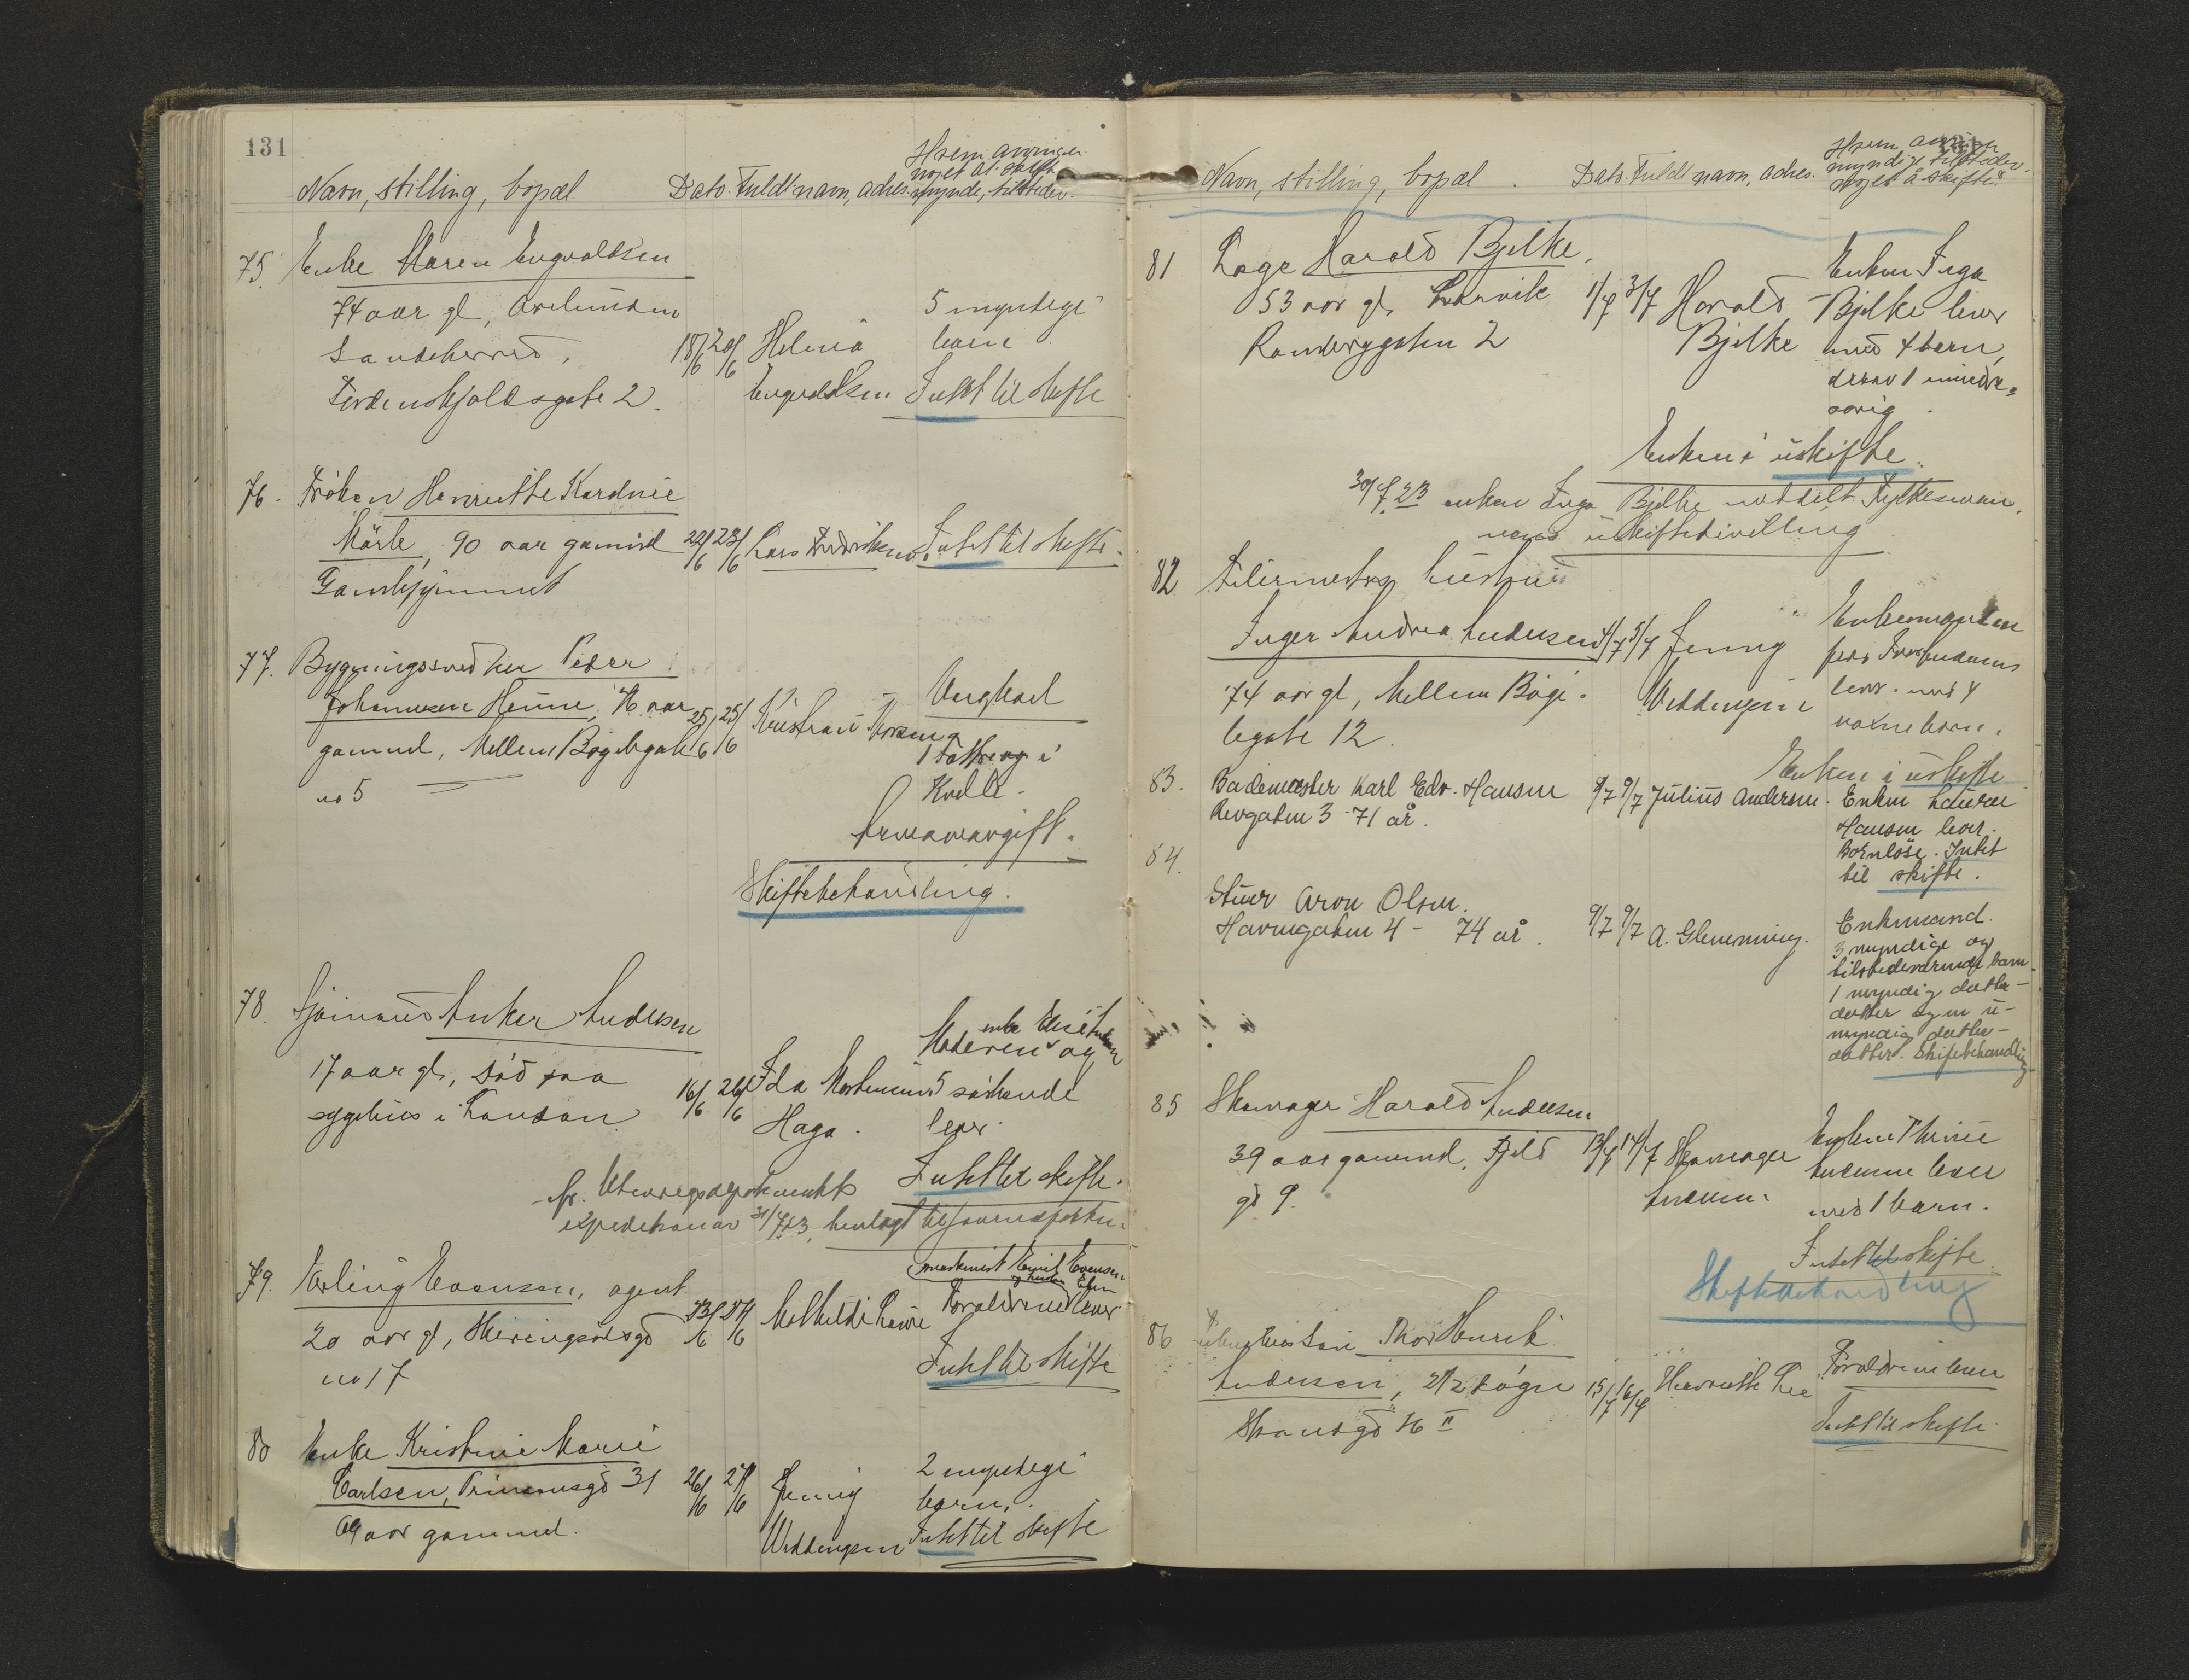 131
Navn, stilling, bopæl Dato Fuldt navn, adres.
Hvem arvinger
noget at skifte
mynde, tilstedev.
75. Enke Maren Engvaldsen
74 aar gl,
Sandeherred,
Tordenskjoldsgate 2.
18/6 20/6 Helena
Engvaldsen
5 myndige
barn
Intet til skifte
76. Frøken Henriette Kardine
Mørle, 90 aar gammel
Gamlehjemmet
22/6 23/6 Lars Fredriksen
Intet til skifte.
77. Bygningssnedker Peder
Johannesen Heime, 76 aar
gammel, Mellem Bøgelegate
no 5
25/6 25/6 Kristian
Ungkarl
1 i
Kvelle
Arveavgift.
Skiftebehandling.
78. Sjømand Anker Andersen
17 aar gl, død paa
sygehus i London
16/6 26/6 Ida Mortensen
Haga.
enke Else
Moderen og
5 søskende
lever.
Intet til skifte.
fr. Utenriksdepartementets
expedition av 31/7 23, henlagt til
79. Erling Evensen, agent
20 aar gl,
no 17
23/6 27/6 Mathilde
maskinist Emil Evensen
og hustru
Forældrene lever
Intet til skifte
80 Enke Kristine Marie
Carlsen, Prinsensgd 31
69 aar gammel.
26/6 27/6 Jenny
Weddingen
2 myndige
barn.
Intet til skifte
Navn, stilling, bopæl. Dato. Fuldt navn, adres.
Hvem arvinger
myndige tilstedev.
noget å skifte?
81 Loge Harald Bjelke,
53 aar gl, Larvik
2
1/7 3/7 Harald
Bjelke
Enken Inga
Bjelke lever
med 4 barn,
derav 1 mindre-
aarig.
Enken i uskifte.
30/7.23 enken Inga Bjelke meddelt Fylkesman-
nens uskiftebevilling
82 hustru
Inger Andrea Andersen
74 aar gl, Mellem Bøge-
legate 12.
4/7 5/7 Jenny
Weddingen
Enkemanden
lever med 4
voksne barn.
Enken i uskifte
83. Bademester Karl Edv. Hansen
Revgaten 3 - 71 år.
9/7 9/7 Julius Andersen.
Enken Laura
Hansen lever.
Barnløse. Intet
til skifte.
84.
Stuer Aron Olsen.
Havnegaten 4 - 74 år.
9/7 9/7 A. Glenning.
Enkemand.
3 myndige og
tilstedeværende barn.
1 myndig datter-
datter og en u-
myndig datter-
datter. Skiftebehandling
85 Skomager Harald Andersen
39 aar gammel, Fjeld
gd 9.
13/7 14/7 Skomager
Andersen.
Enken
Andersen lever
med 1 barn.
Intet til skifte.
Skiftebehandling
86 Thor Henrik
Andersen, 2 1/2 døgn
15/7 16/7 Henriette Lie
Forældrene lever
Intet til skifte.